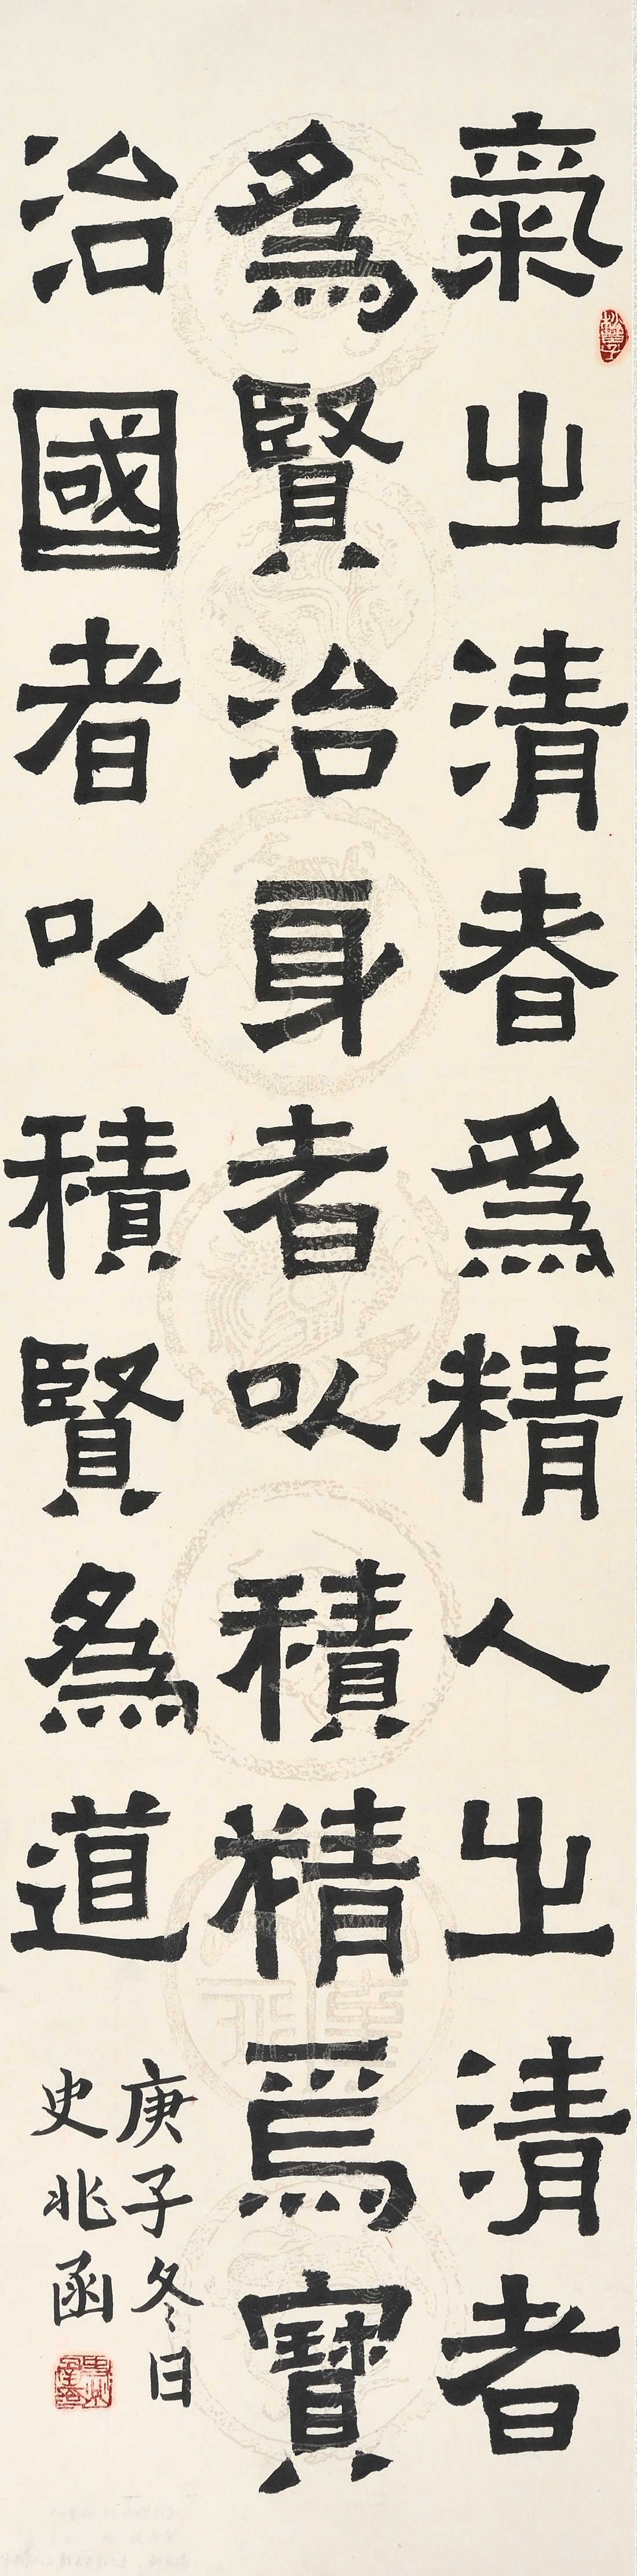 氣之清者爲精人之清者
爲賢治身者以積精爲寶
治國者以積賢爲道
庚子冬日
史兆函